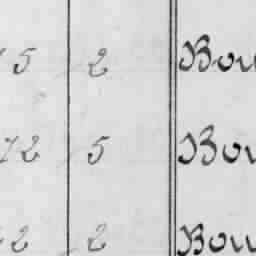 5 2 Bou
72 5 Bou
2 2 Bou